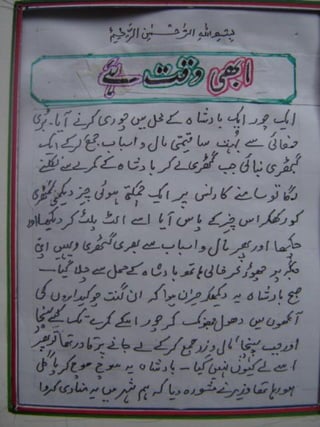 بسم اللہ الرحمٰن الرحیم
ابھی وقت ہے
ایک چور ایک بادشاہ کے محل میں چوری کرنے آیا۔ بڑی
صفائی سے بہت سا قیمتی مال و اسباب جمع کرکے ایک
گٹھڑی بنائی جب گٹھڑی لے کر بادشاہ کے کمرے سے نکلنے
لگا تو سامنے کارنس پر ایک چمکتی ہوئی چیز دیکھی گٹھڑی
کو رکھکر اس چیز کے پاس آیا اسے الٹ پلٹ کر دیکھا اور
چکھا اور پھر مال و اسباب سے بھری گٹھڑی وہیں اپنی
جگہ پر چھوڑ کر خالی ہاتھ بادشاہ کے محل سے چلا گیا۔
صبح بادشاہ یہ دیکھکر حیران ہوا کہ ان گنت چوکیداروں کی
آنکھوں میں دھول جھونک کر چور اسکے کمرے تک کیسے پہنچا
اور جب پہنچا مال و زر جمع کرکے لے جانے پر قادر تھا تو پھر
اسے لے کیوں نہیں گیا۔ بادشاہ یہ سوچ سوچ کر پاگل
ہو رہا تھا وزیر نے مشورہ دیا کہ ہم شہر میں یہ منادی کروا